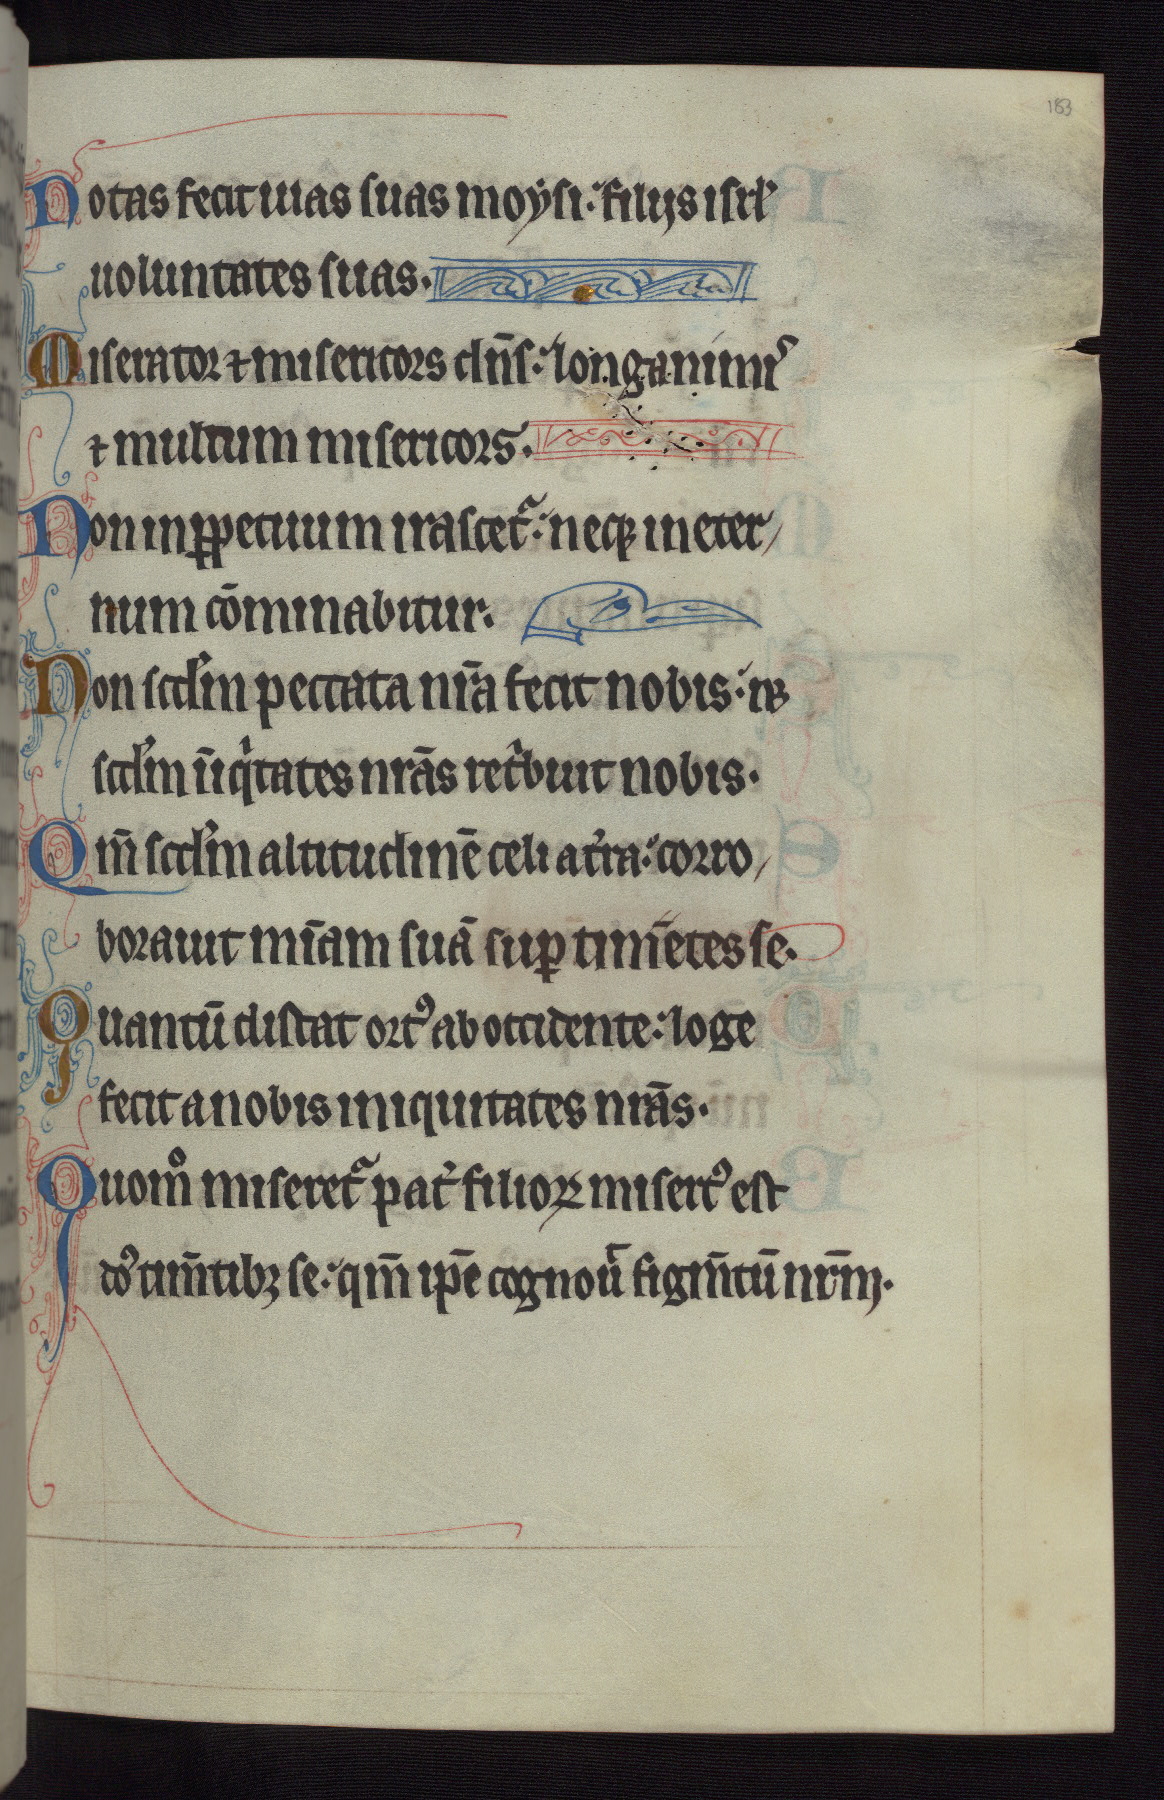 183
Notas fecit uias suas moysi: filijs isrl'
uoluntates suas.
Miserator ⁊ misericors dn̄s: longanimi᷒
⁊ multum misericors.
Non in ꝑpetuum irascet᷑: neqꝫ in eter/
num cōminabitur.
Non scd'm peccata nr̄a fecit nobis: nꝫ
scd'm iniq'tates nrās ret'buit nobis.
Qm̄ scd'm altitudinē celi a t'ra: corro/
borauit mīam suā suꝑ timētes se.
Quantū distat ort᷒ ab occidente: loge
fecit a nobis iniquitates nrās.
Quom̊ miseret᷑ pat' filioꝝ misert᷒ est
do᷒ tim̄tibꝫ se: qm̄ ipē cognou᷑ figm̄tū nrm̄.